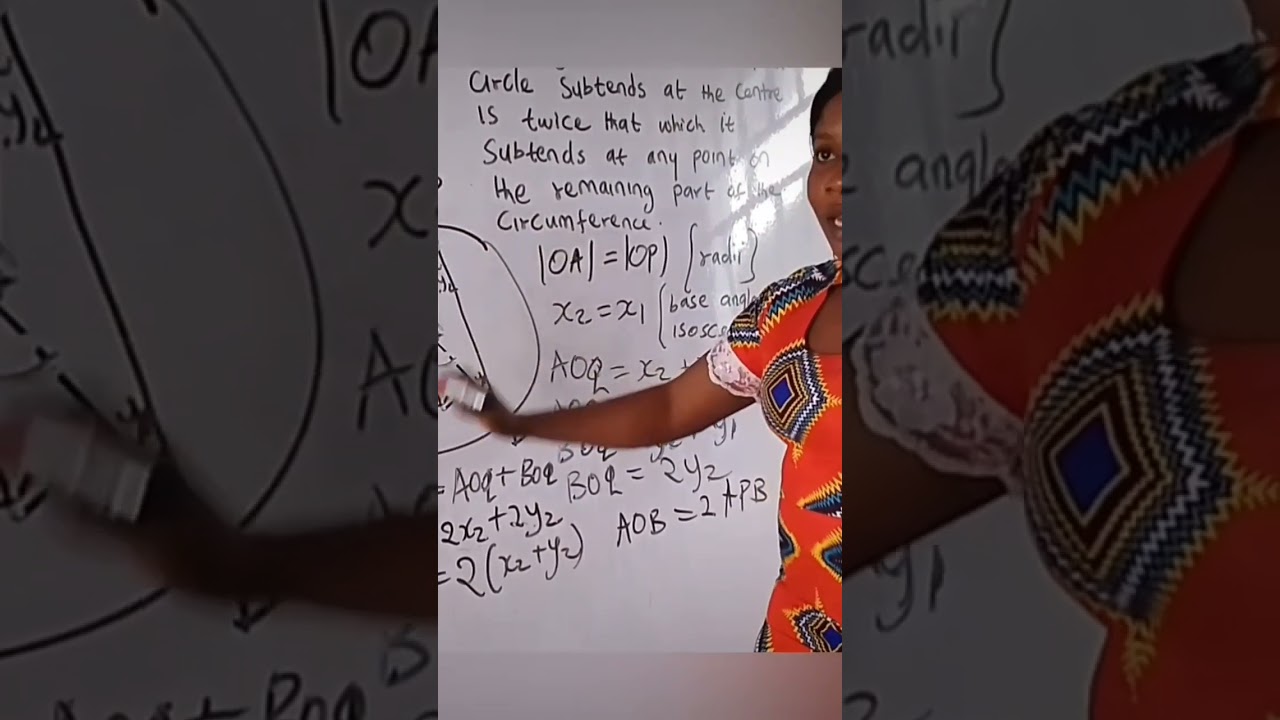 Circle Subtends at the Centre
is twice that which it
Subtends at any point on
the remaining part of the
Circumference.
|OA| = |OP| [radii]
x₂ = x₁ (base angle
isosc
AOQ = x₂ +
BOQ = 2y₂
= AOQ + BOQ
2x₂ + 2y₂
= 2(x₂ + y₂)
AOB = 2APB